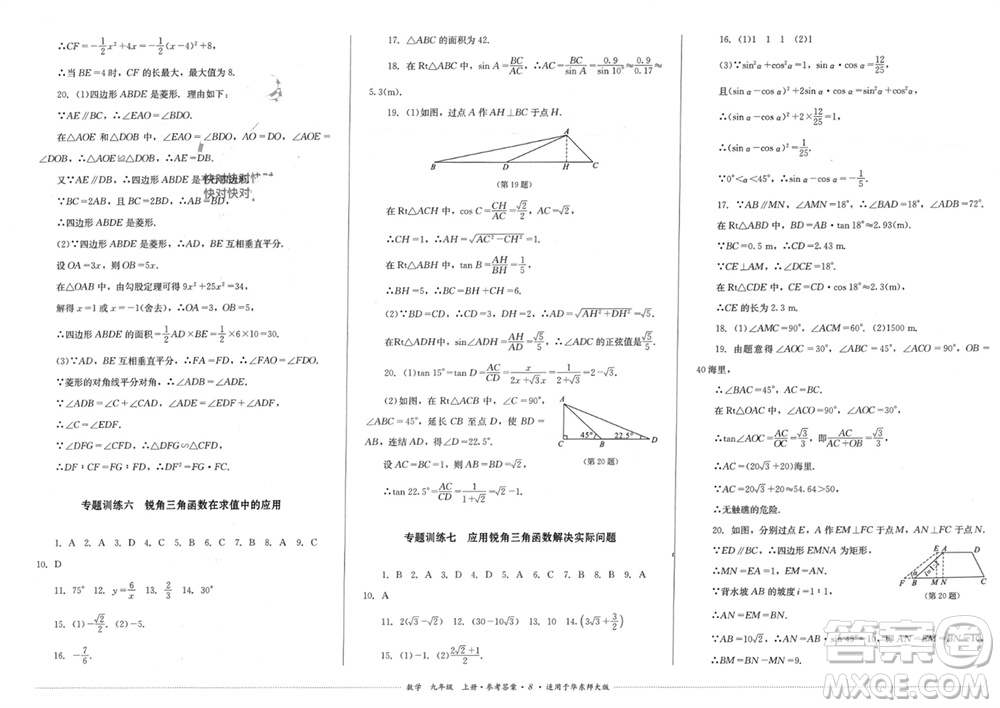 ∴CF=-1/2x²+4x=-1/2(x-4)²+8,
∴当 BE=4时, CF 的长最大, 最大值为 8.
20. (1)四边形 ABDE 是菱形. 理由如下:
∵AE∥BC, ∴∠EAO=∠BDO.
在△AOE 和△DOB 中, ∠EAO=∠BDO, AO=DO, ∠AOE=
∠DOB, ∴△AOE≌△DOB, ∴AE=DB.
又∵AE∥DB, ∴四边形 ABDE 是平行四边形.
快对快对快对
快对快对
∵BC=2AB, 且 BC=2BD, ∴AB=BD,
∴四边形 ABDE 是菱形.
(2)∵四边形 ABDE 是菱形, ∴AD, BE 互相垂直平分.
设 OA=3x, 则 OB=5x.
在△OAB 中, 由勾股定理可得 9x²+25x²=34.
解得 x=1或 x=-1(舍去), ∴OA=3, OB=5,
∴四边形 ABDE 的面积=1/2AD×BE=1/2×6×10=30.
(3)∵BE 垂直平分 AD, ∴FA=FD, ∴∠FAD=∠FDA.
∵菱形的对角线平分对角, ∴∠BDA=∠ADE.
∵∠FAD=∠C+∠CAD, ∠FDA=∠ADE+∠EDF,
∴∠C=∠EDF.
∵∠DFG=∠CFD, ∴△DFG∽△CFD,
∴DF∶CF=FG∶DF, ∴DF²=FG·CF.
专题训练六 锐角三角函数在求值中的应用
1. A 2. A 3. D 4. A 5. B 6. C 7. C 8. A 9. C
10. D
11. 75° 12. y=6/x 13. 2/3 14. 30°
15. (1)-√2/2. (2)-5.
16. -7/6.
17. △ABC 的面积为 42.
18. 在 Rt△ABC 中, sin A=BC/AC, ∴AC=BC/sin A=0.9/sin 10°≈0.9/0.17≈
5.3(m).
19. (1)如图, 过点 A 作 AH⊥BC 于点 H.
A
B D H C
(第 19 题)
在 Rt△ACH 中, cos C=CH/AC=√2/2, AC=√2,
∴CH=1, ∴AH=√(AC²-CH²)=1.
在 Rt△ABH 中, tan B=AH/BH=1/5,
∴BH=5, ∴BC=BH+CH=6.
(2)∵BD=CD, ∴CD=3, DH=2, ∴AD=√(AH²+DH²)=√5.
在Rt△ADH中, sin∠ADH=AH/AD=√5/5, ∴∠ADC的正弦值为√5/5.
20. (1)tan 15°=tan D=AC/CD=x/(2x+√3x)=1/(2+√3)=2-√3.
(2)如图, 在 Rt△ABC 中, ∠C=90°,
∠ABC=45°, 延长 CB 至点 D, 使得 BD=
AB, 连结 AD, 得∠D=22.5°.
设 AC=1, 则 BC=1, AB=√2=BD.
A
45° 22.5°
C B D
(第 20 题)
∴tan 22.5°=AC/CD=1/(1+√2)=√2-1.
专题训练七 应用锐角三角函数解决实际问题
1. B 2. A 3. D 4. D 5. B 6. A 7. B 8. B 9. A
10. A
11. 2(√3-√2) 12. (30-10√3) 13. 10 14. (5+3√3/2)
15. (1)-1. (2)(2√2+1)/2.
16. (1)1 1 1 (2)1
(3)∵(sin α+cos α)²=sin²α+2sin α·cos α+cos²α=12/25
且(sin α-cos α)²+2sin α·cos α=1,
∴(sin α-cos α)²+12/25=1,
∴sin α-cos α=±1/5.
∵0°<α<45°, ∴sin α-cos α=-1/5.
17. ∵AB∥MN, ∠AMN=18°, ∴∠BAD=18°, ∠ABD=72°.
在 Rt△ABD 中, BD=AD·tan 18°≈2.93(m).
∵BC=0.5 m, ∴CD=2.43 m.
∵CE⊥AM, ∴∠DCE=18°.
在 Rt△CDE 中, CE=CD·cos 18°≈2.3(m),
∴CE 的长为 2.3 m.
18. (1)∠AMC=90°, ∠AMB=60°. (2)1500 m.
19. 由题意得∠AOC=30°, ∠ABC=45°, ∠ACO=90°, OB=20×2=
40 海里,
∴∠BAC=45°, ∴AC=BC.
在 Rt△OAC 中, ∠ACO=90°, ∠AOC=30°,
∴tan∠AOC=AC/OC=√3/3, 即AC/(AC+OB)=√3/3,
∴AC=(20√3+20)海里.
∴AC=(20√3+20)≈54.64>50,
∴无触礁的危险.
20. 如图, 分别过点 E, A 作 EM⊥BF, AN⊥BC 于点 M, N.
∵ED∥BC, ∴四边形 EMNA 为矩形,
∴EM=AN, MN=AE=2 m.
∵背水坡 AB 的坡度 i=1∶1,
∴AN=EM=BN.
F B M N C
(第 20 题)
答案圈
MXQE.COM
数学 九年级 上册·参考答案·8·适用于华东师大版